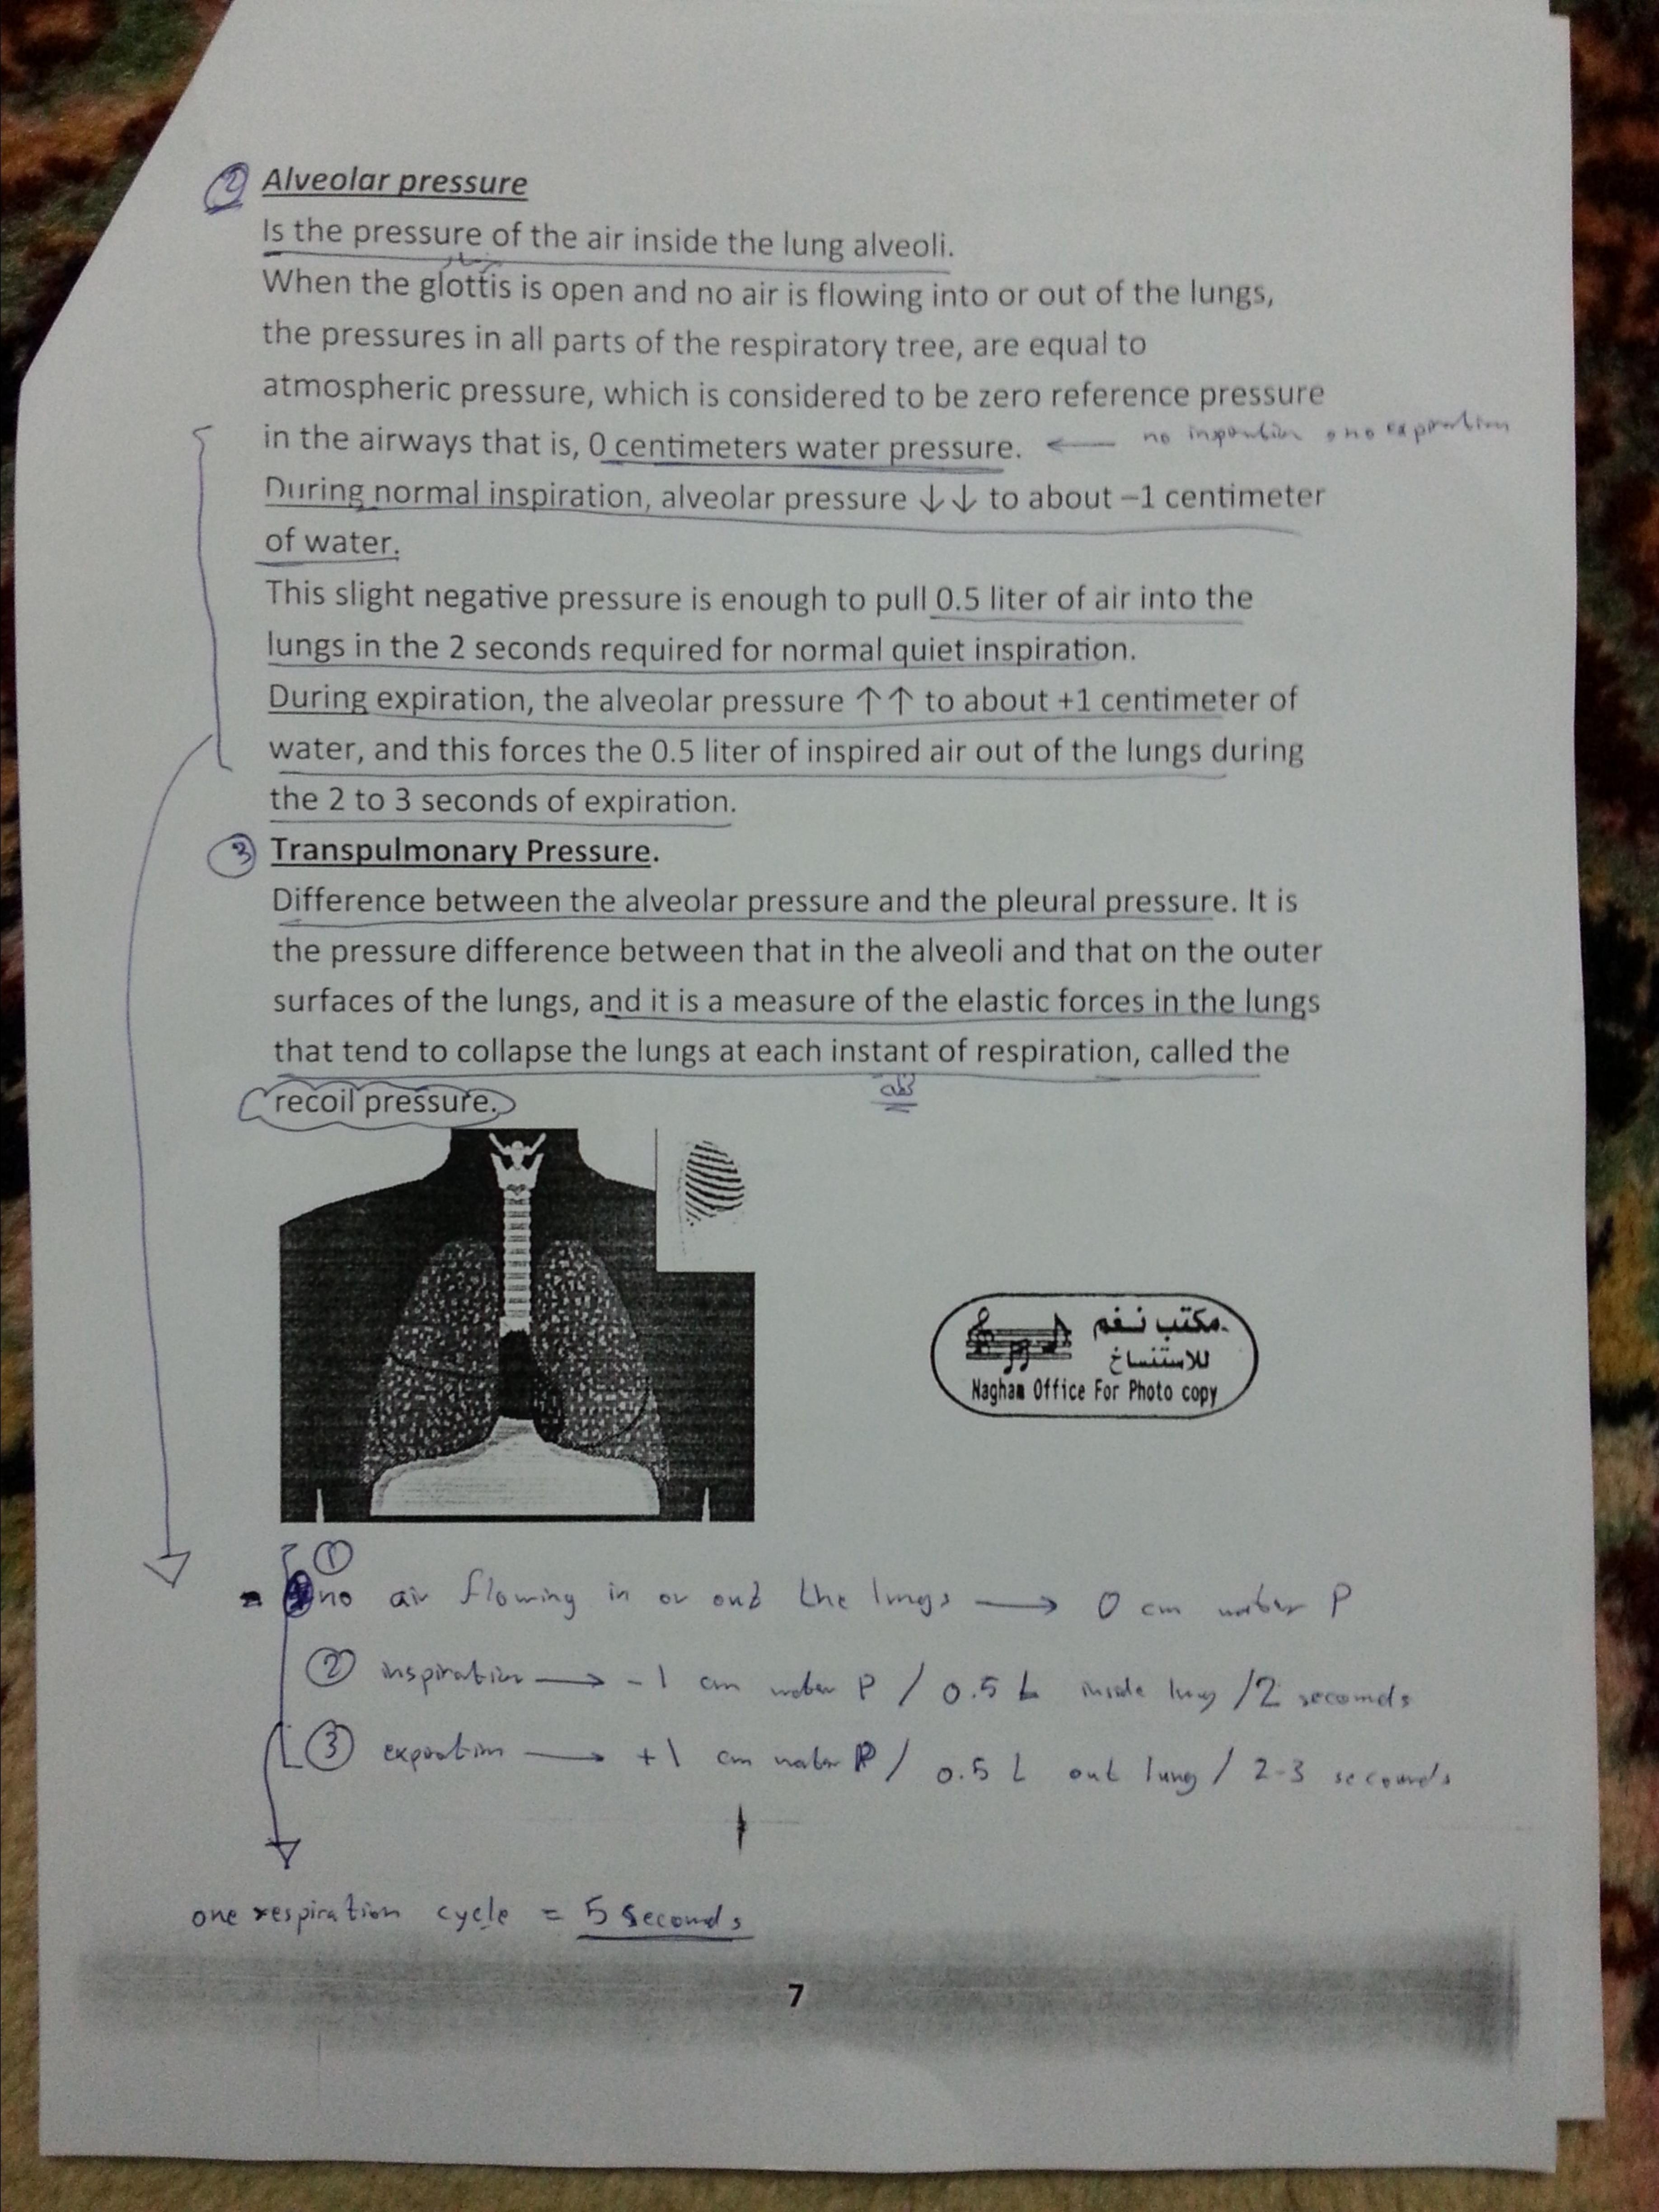 2 Alveolar pressure
Is the pressure of the air inside the lung alveoli.
When the glottis is open and no air is flowing into or out of the lungs,
the pressures in all parts of the respiratory tree, are equal to
atmospheric pressure, which is considered to be zero reference pressure
in the airways that is, 0 centimeters water pressure. ← no inspiration, no expiration
During normal inspiration, alveolar pressure ↓↓ to about –1 centimeter
of water.
This slight negative pressure is enough to pull 0.5 liter of air into the
lungs in the 2 seconds required for normal quiet inspiration.
During expiration, the alveolar pressure ↑↑ to about +1 centimeter of
water, and this forces the 0.5 liter of inspired air out of the lungs during
the 2 to 3 seconds of expiration.
3 Transpulmonary Pressure.
Difference between the alveolar pressure and the pleural pressure. It is
the pressure difference between that in the alveoli and that on the outer
surfaces of the lungs, and it is a measure of the elastic forces in the lungs
that tend to collapse the lungs at each instant of respiration, called the
recoil pressure.
مكتب نغم
للاستنساخ
Nagham Office For Photo copy
① no air flowing in or out the lungs → 0 cm water P
② inspiration → -1 cm water P / 0.5 L inside lung / 2 seconds
③ expiration → +1 cm water P / 0.5 L out lung / 2-3 seconds
one respiration cycle = 5 seconds
7